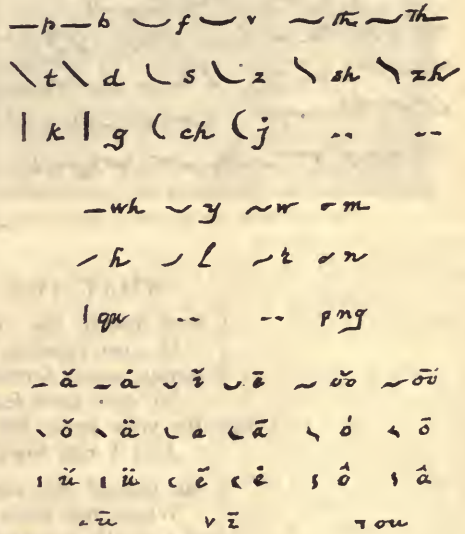 p b f v th Th
t d s z sh zh
k g ch j -- --
wh y w m
h l r n
qu -- -- ng
ă ȧ ĭ ē o͝o o͞o
ŏ ä a ā ȯ ō
ŭ ü ĕ ė ô â
ū ī ou